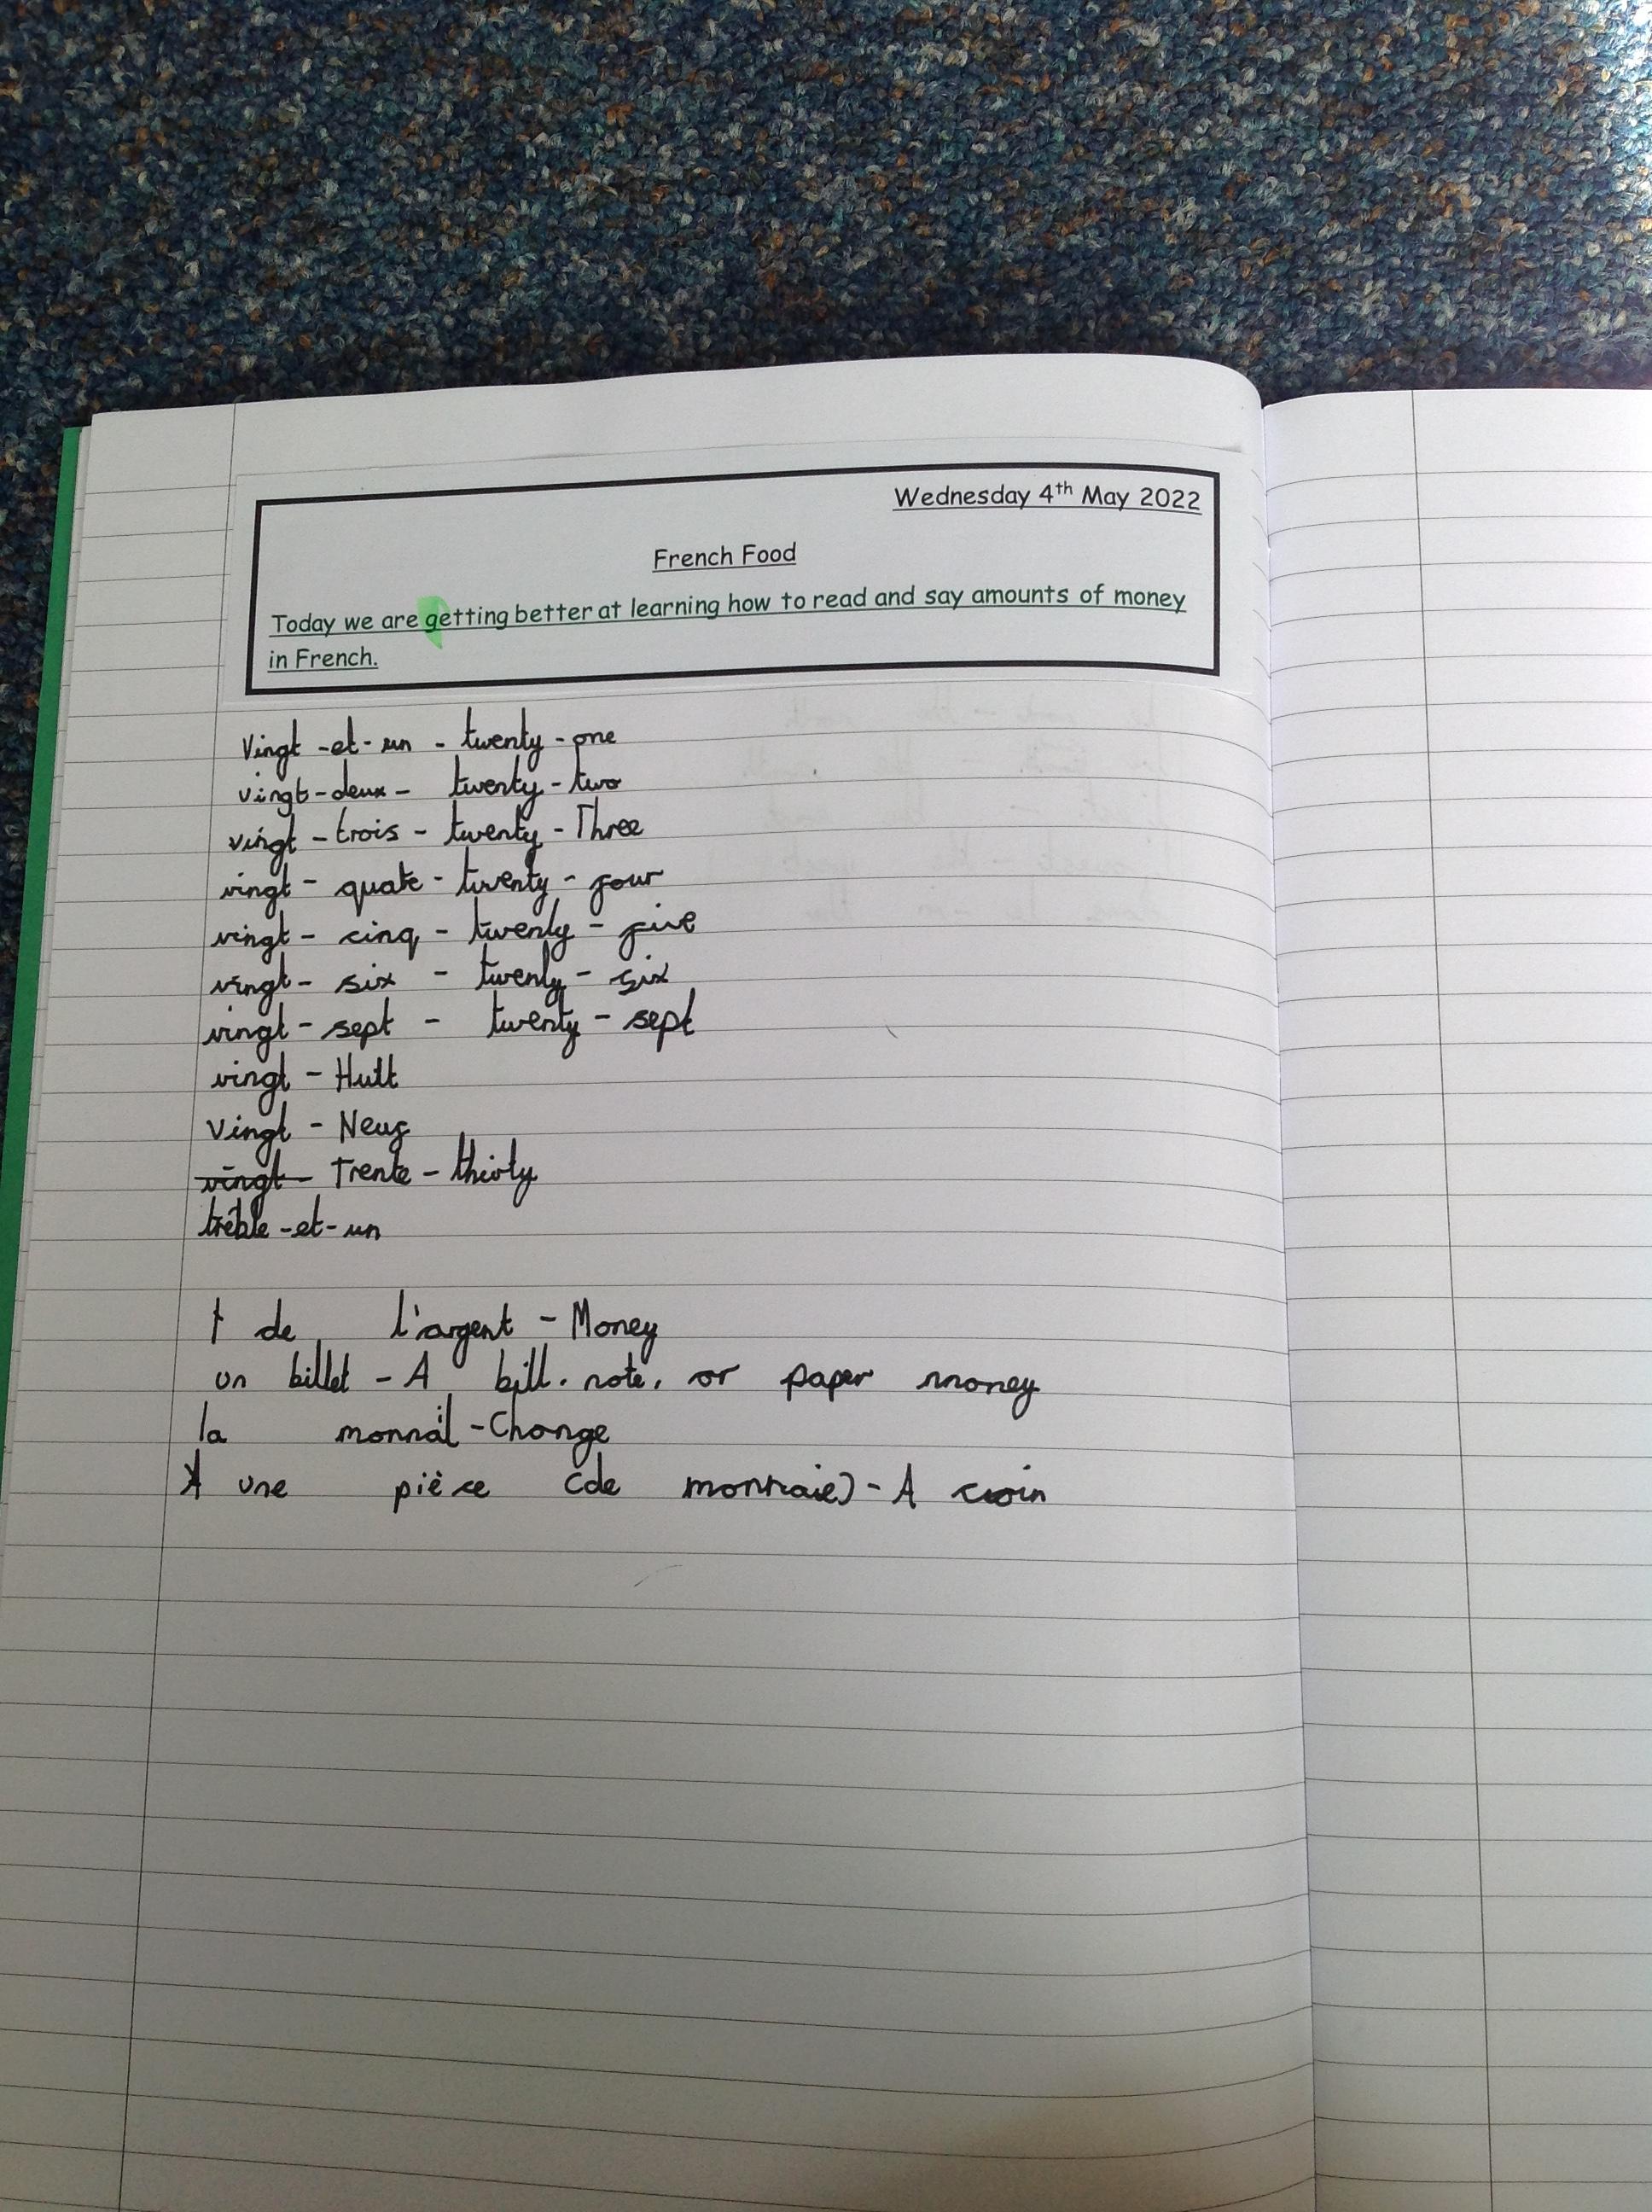 Wednesday 4th May 2022
French Food
Today we are getting better at learning how to read and say amounts of money
in French.
Vingt-et-un - twenty-one
vingt-deux - twenty-two
vingt-trois - twenty-Three
vingt-quate - twenty-four
vingt-cinq - twenty-five
vingt-six - twenty-six
vingt-sept - twenty-sept
vingt-Huit
Vingt-Neuf
vingt- Trente - thirty
-et-un
de l'argent - Money
un billet - A bill. note, or paper money
la - Change
une pièce (de monnaie) - A